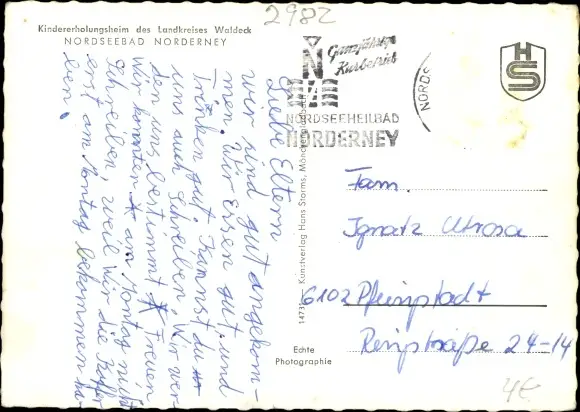 2982
Kindererholungsheim des Landkreises Waldeck
NORDSEEBAD NORDERNEY
Ganzjährige
Kurbetrieb
NORDSEEHEILBAD
NORDERNEY
NORDS
HS
Liebe Eltern
wir sind gut angekom-
men. Wir essen gut und
Trinken gut. Kannst du
uns auch schreiben, Wir wer-
den uns bestimmt freuen
Wir konnten am Montag nicht
Schreiben, weil wir die Koffer
erst am Montag bekommen ha-
ben.
Kunstverlag Hans Storms, Mönchengladbach
Echte
Photographie
Fam.
Ignatz
6102 Pfungstadt
Ringstraße 24-14
4€